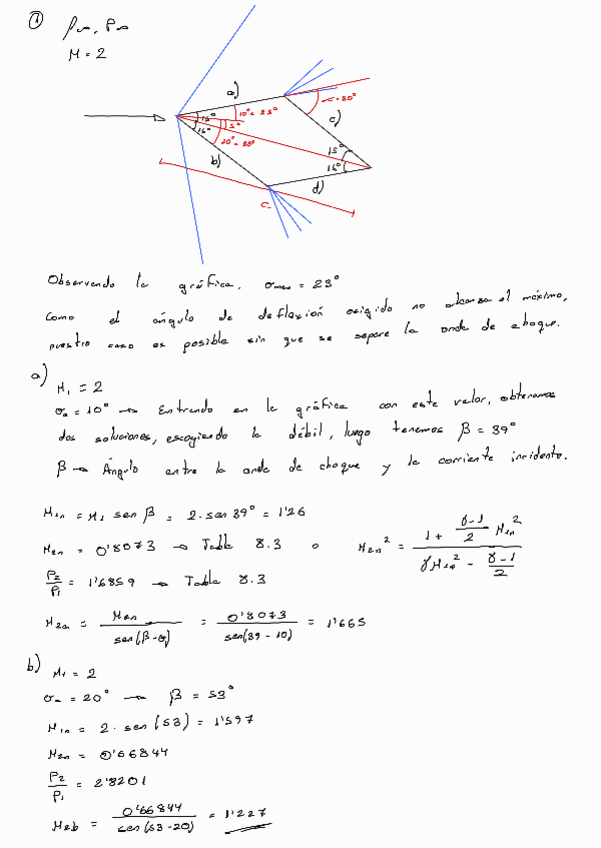 ① ρ∞, P∞
M = 2
a)
15°
15°
10° < 23°
5°
20° < 23°
b)
-30°
c)
15°
15°
d)
c
Observando la gráfica, σmax = 23°
Como el ángulo de deflexión exigido no alcanza el máximo,
nuestro caso es posible sin que se separe la onda de choque.
a)
M₁ = 2
σa = 10° → Entrando en la gráfica con este valor, obtenemos
dos soluciones, escogiendo la débil, luego tenemos β = 39°
β → Ángulo entre la onda de choque y la corriente incidente.
M1n = M1 sen β = 2·sen 39° = 1'26
M2n = 0'8073 → Tabla 8.3 o M2n² = (1 + (γ-1)/2 M1n²) / (γM1n² - (γ-1)/2)
P2/P1 = 1'6859 → Tabla 8.3
M2a = M2n / sen(β-σ) = 0'8073 / sen(39-10) = 1'665
b) M₁ = 2
σa = 20° → β = 53°
M1n = 2·sen(53) = 1'597
M2n = 0'66844
P2/P1 = 2'8201
M2b = 0'66844 / sen(53-20) = 1'227